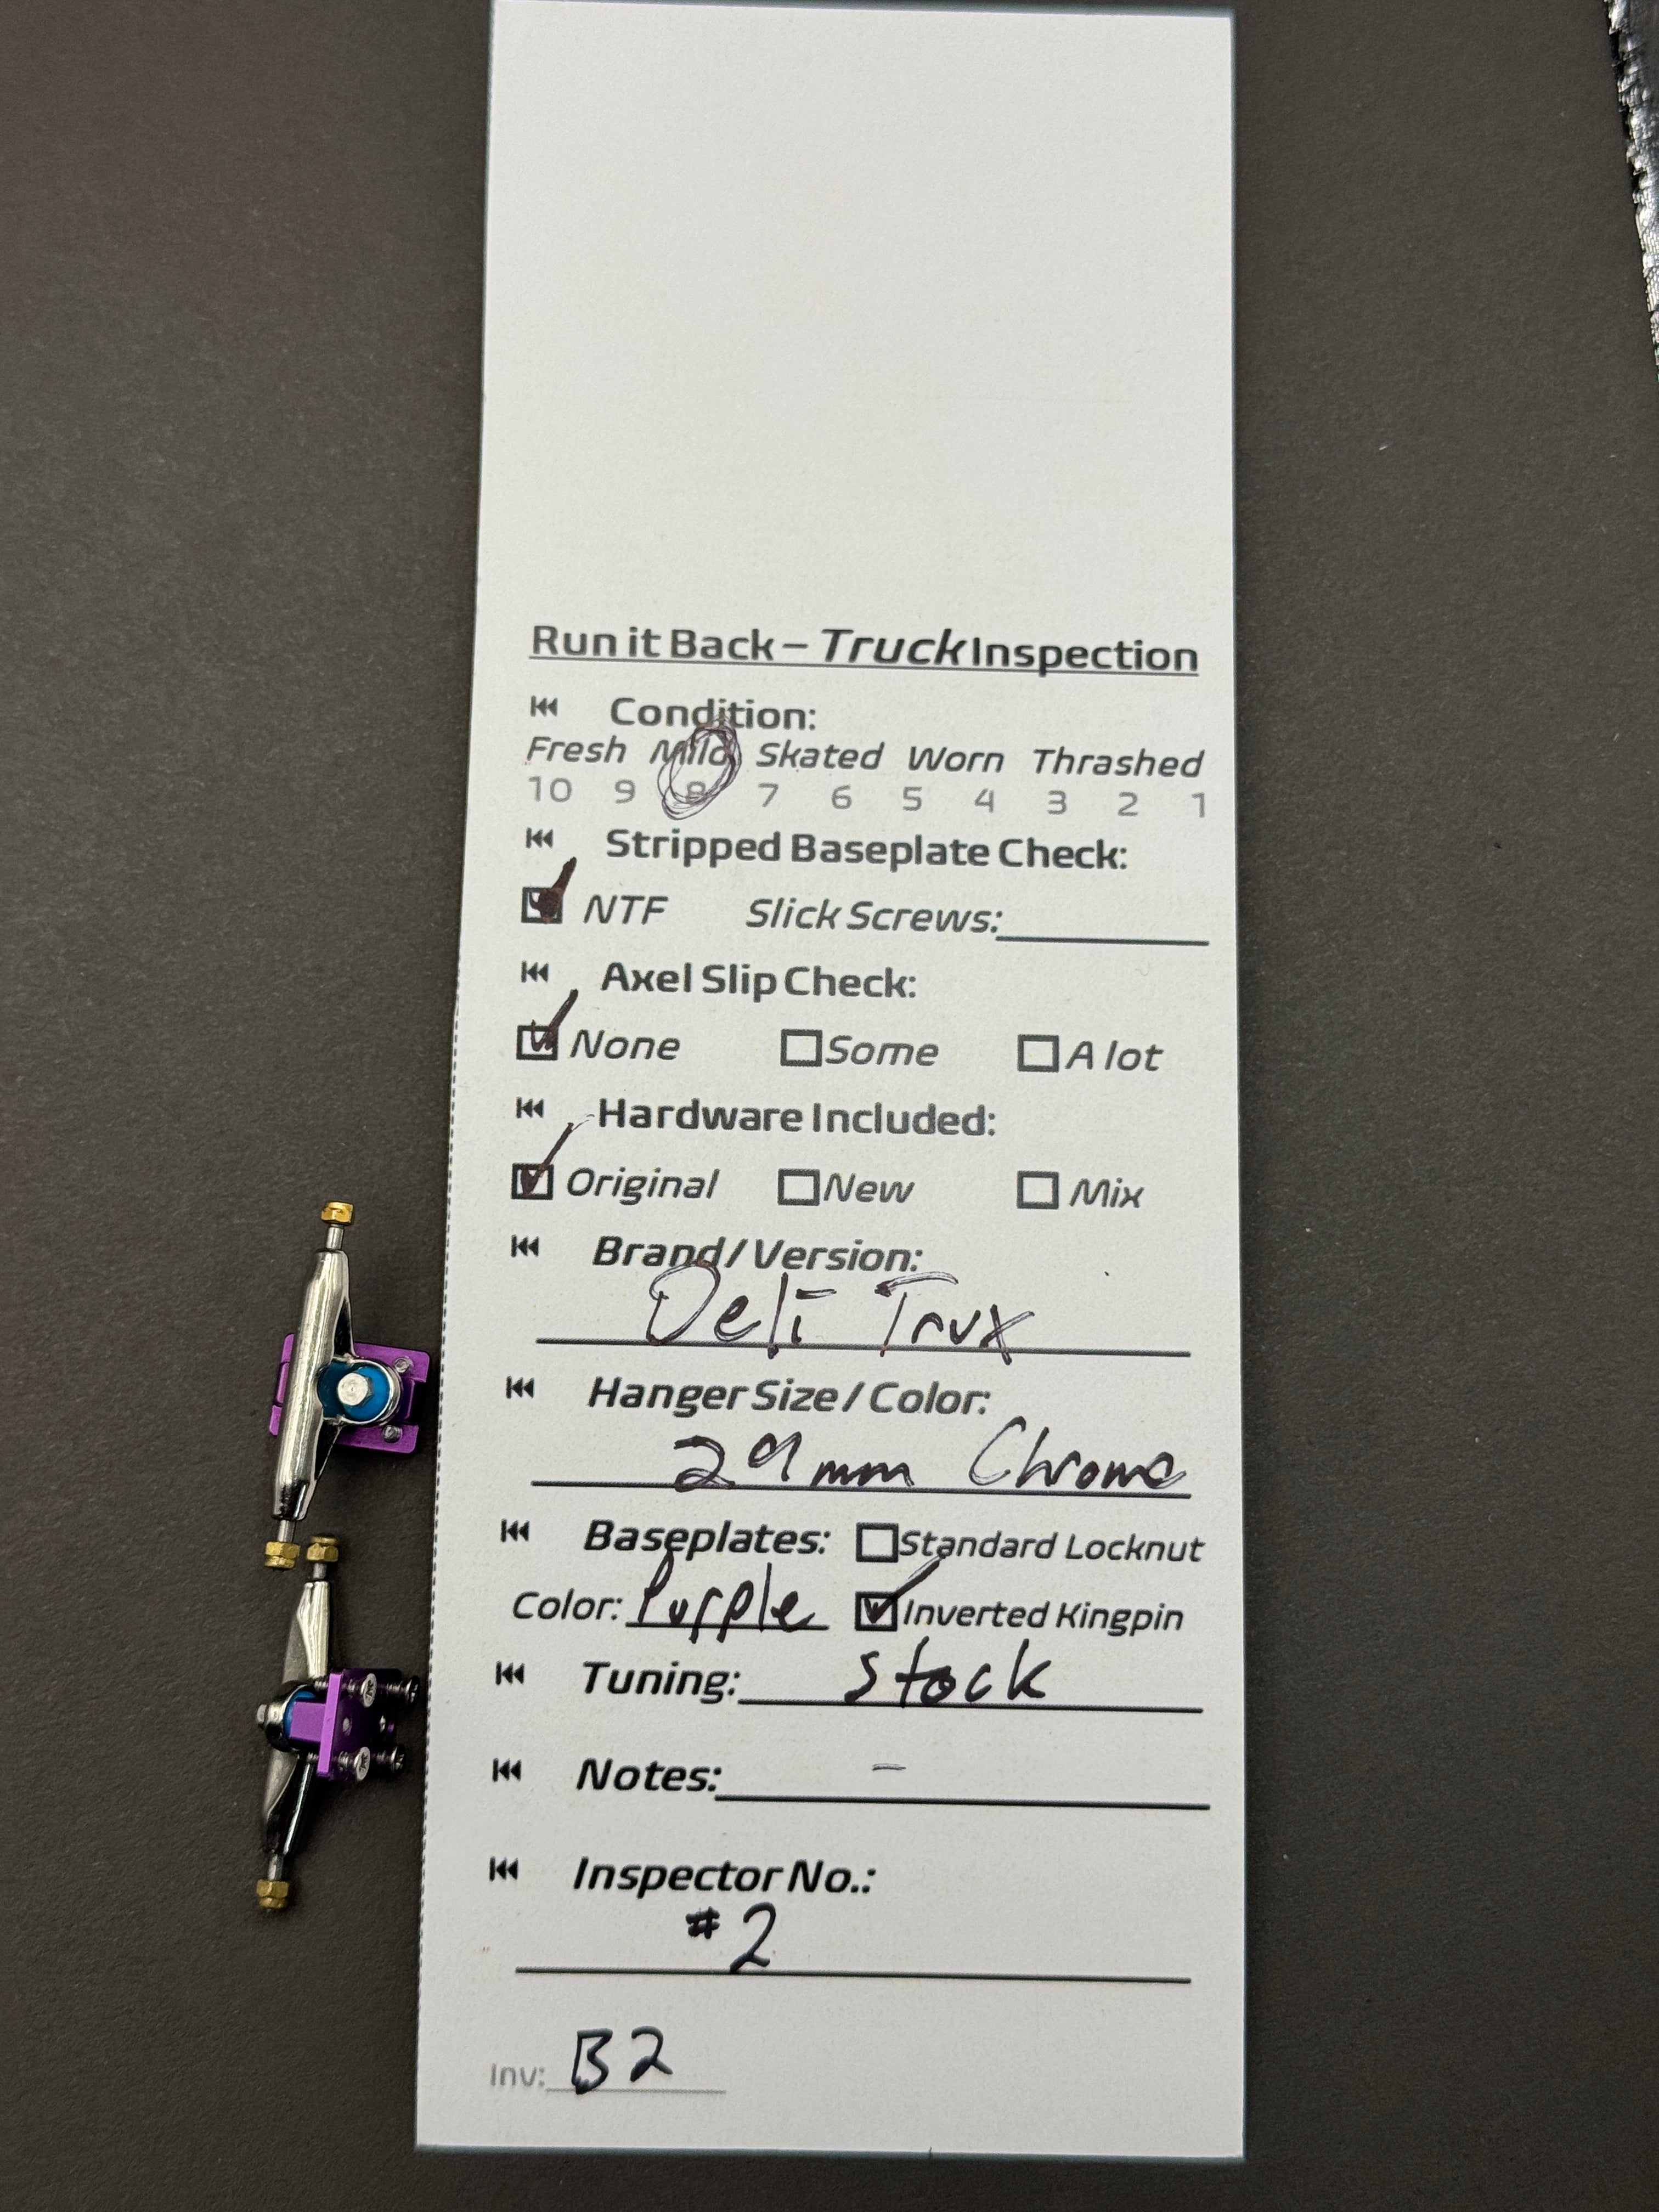 Run it Back – Truck Inspection
Condition:
Fresh Mild Skated Worn Thrashed
10 9 8 7 6 5 4 3 2 1
Stripped Baseplate Check:
NTF Slick Screws:
Axel Slip Check:
None Some A lot
Hardware Included:
Original New Mix
Brand / Version:
Deli Trux
Hanger Size / Color:
29mm Chrome
Baseplates: Standard Locknut
Color: Purple Inverted Kingpin
Tuning: Stock
Notes: –
Inspector No.:
#2
Inv: B2